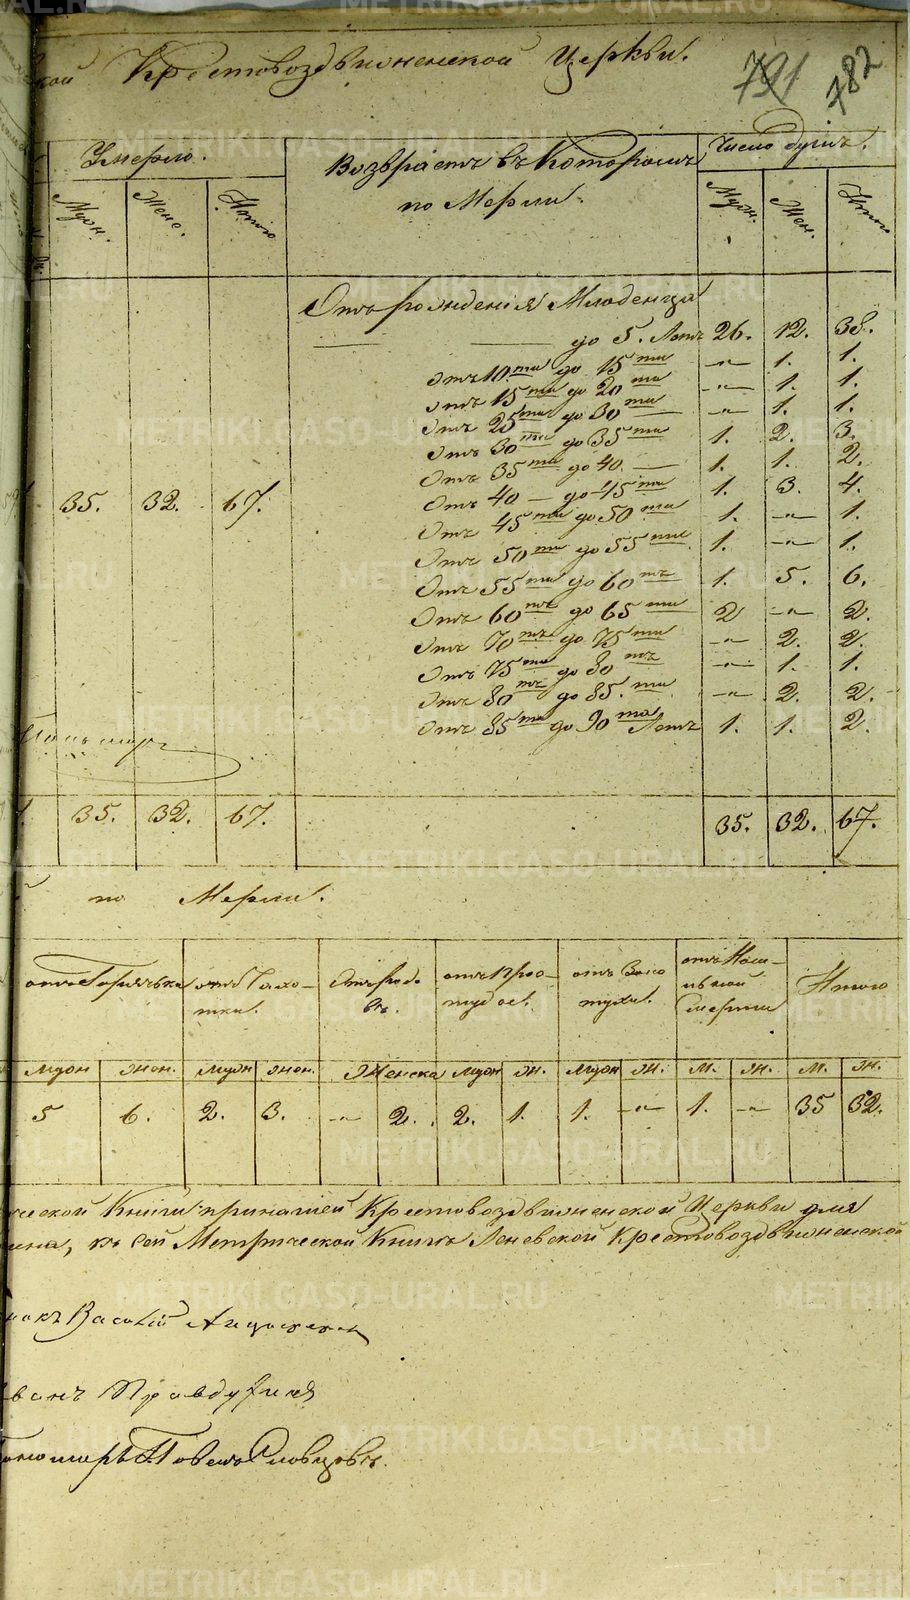 кой Крестовоздвиженской Церкви.
791 782
Умерло.
Возврастъ въ Котором
по Мерли.
Число душъ.
Муж. Жене. Итого
Муж. Жен. Итого
Отъ рожденія Младенца
до 5. Летъ 26. 12. 38.
Отъ 10 ти до 15 ти —„— 1. 1.
Отъ 15 ти до 20 ти —„— 1. 1.
Отъ 25 ти до 30 ти —„— 1. 1.
Отъ 30 ти до 35 ти 1. 2. 3.
Отъ 35 ти до 40. — 1. 1. 2.
Отъ 40 — до 45 ти 1. 3. 4.
35. 32. 67.
Отъ 45 ти до 50 ти 1. —„— 1.
Отъ 50 ти до 55 ти 1. —„— 1.
Отъ 55 ти до 60 тъ 1. 5. 6.
Отъ 60 тъ до 65 ти 2 —„— 2.
Отъ 70 тъ до 75 ти —„— 2. 2.
Отъ 75 ти до 80 тъ —„— 1. 1.
Отъ 80 тъ до 85. ти —„— 2. 2.
Отъ 85 ти до 90 та Летъ 1. 1. 2.
35. 32. 67. 35. 32. 67.
по Мерли.
отъ Горячька
отъ Чахо-
тки.
Отъ родо
въ.
отъ Прос-
туд
отъ Золо
тухи.
отъ Наси-
льной
Смерти
Итого
муж жен. муж жен. Женска муж ж. муж ж. м. ж. м. ж.
5 6. 2. 3. —„— 2. 2. 1. 1. —„— 1. —„— 35 32.
ческой Книги Крестовоздвиженской Церкви для
къ сей Метрической Книгъ Леневской Крестовоздвиженской
Василій
Иванъ Правдухинъ
Словцовъ.
METRIKI.GASO-URAL.RU